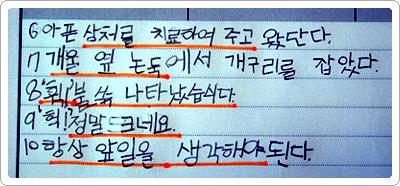 6 아픈 상처를 치료하여 주고 왔단다.
7 개울 옆 논둑에서 개구리를 잡았다.
8 '휙!' 불쑥 나타났습니다.
9 '헉! 정말 크네요.
10 항상 앞일을 생각해야 된다.